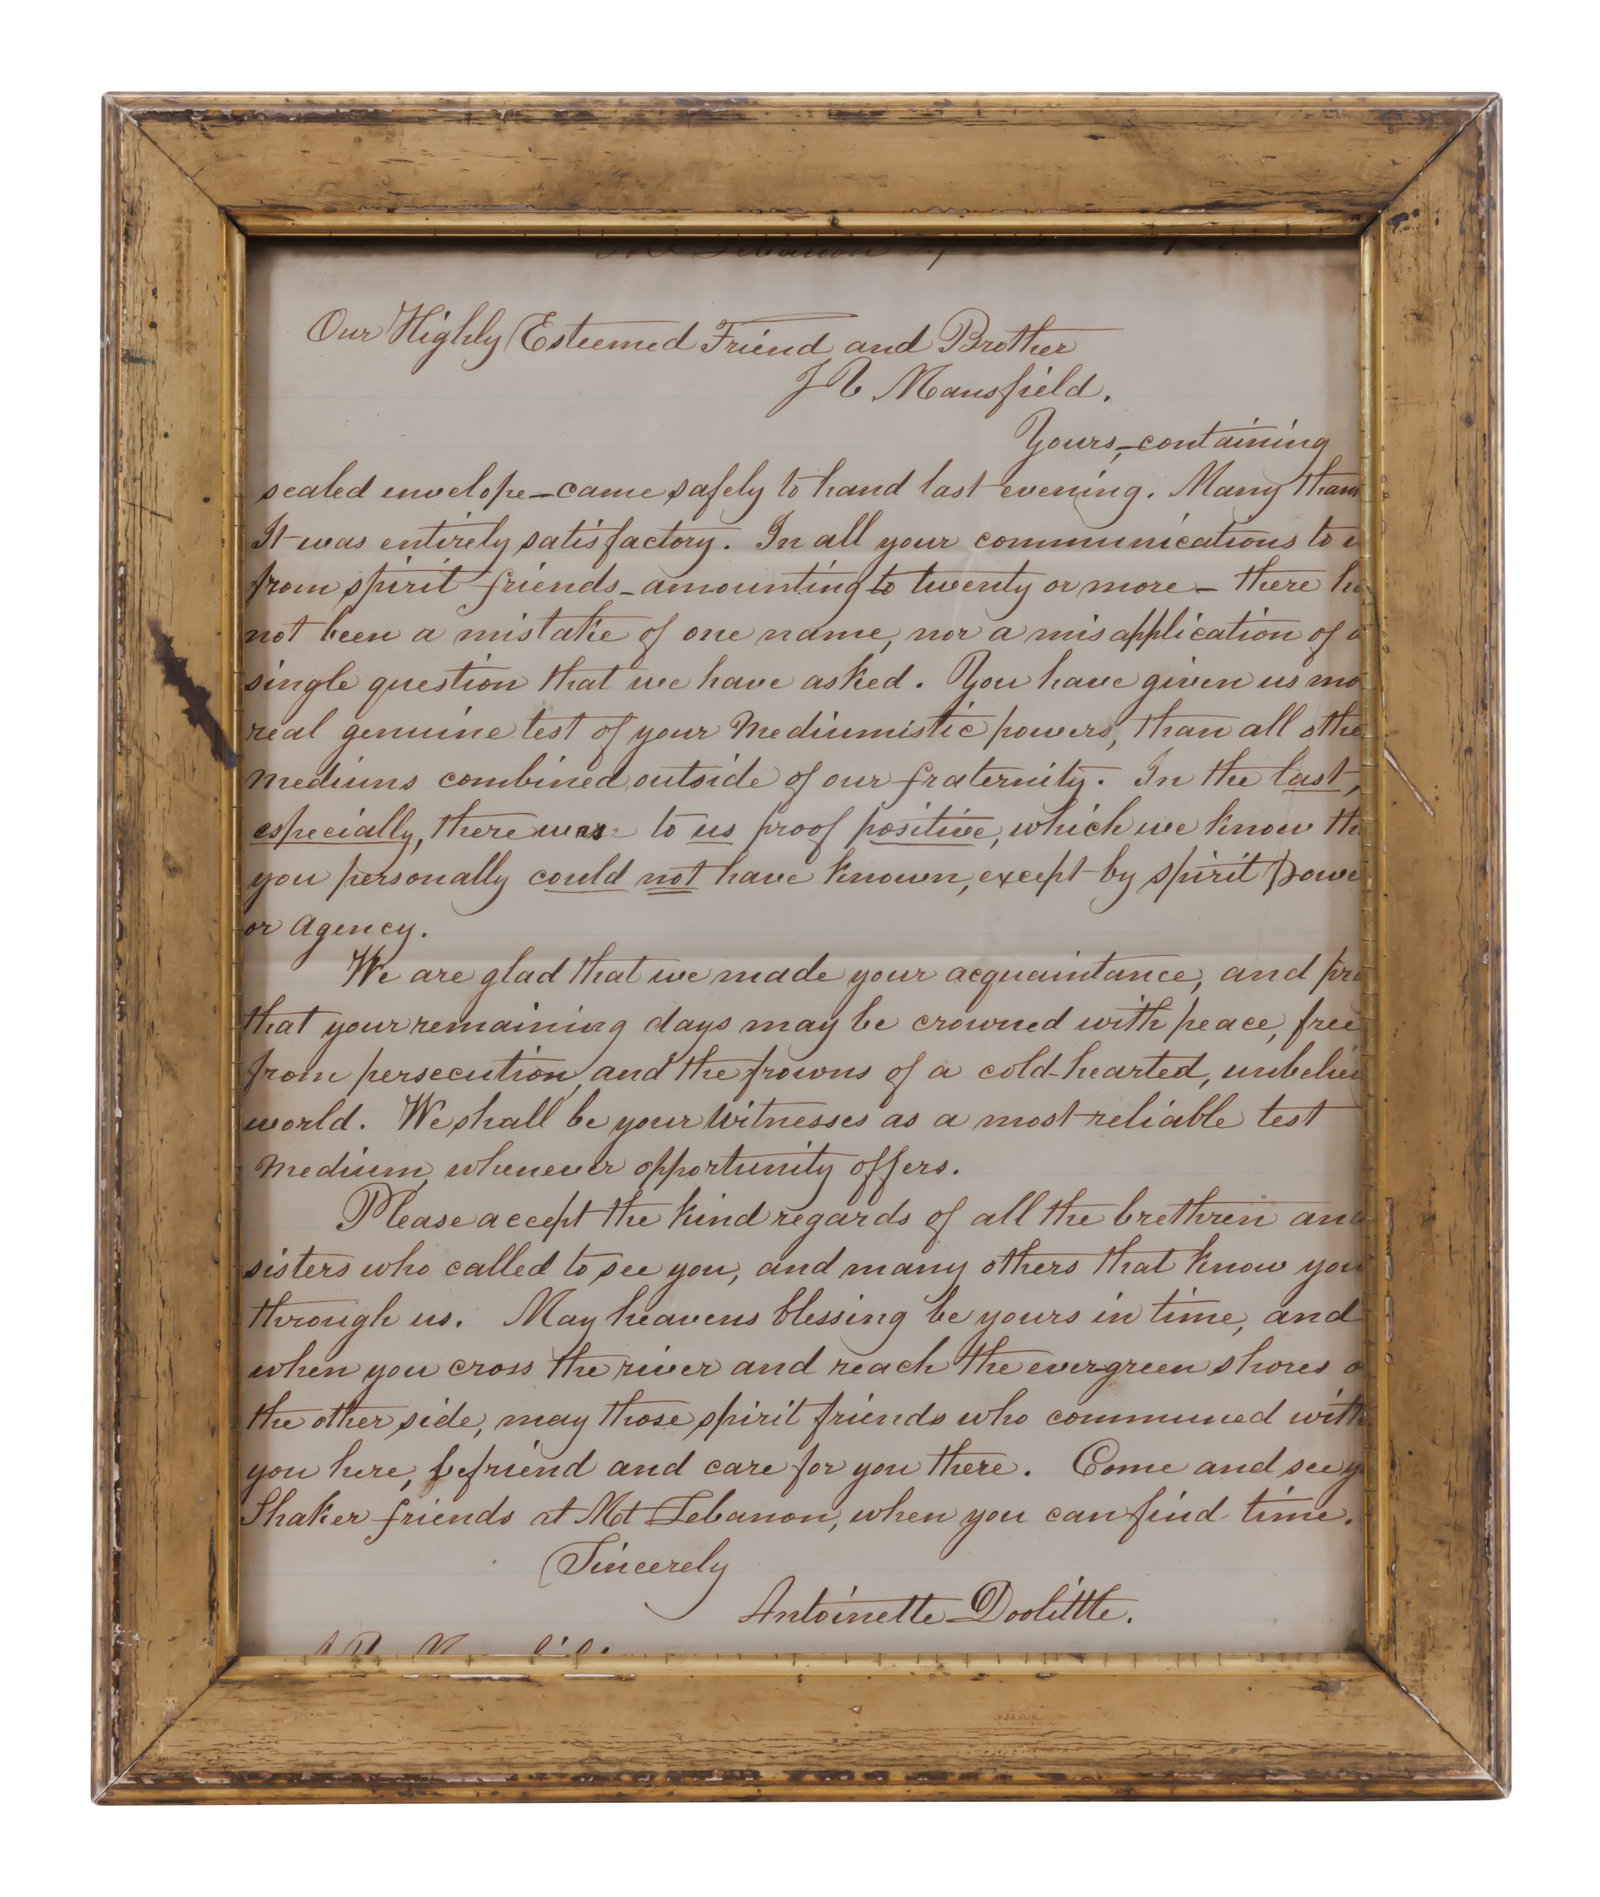 Mt Lebanon
Our Highly Esteemed Friend and Brother
J V Mansfield.
Yours,–containing
sealed envelope–came safely to hand last evening. Many than
It was entirely satisfactory. In all your communications to
from spirit friends–amounting to twenty or more– there h
not been a mistake of one name, nor a misapplication of a
single question that we have asked. You have given us mo
real genuine test of your Mediumistic powers, than all othe
mediums combined, outside of our fraternity. In the last,
especially, there was to us proof positive, which we know th
you personally could not have known, except by spirit Powe
or Agency.
We are glad that we made your acquaintance, and pra
that your remaining days may be crowned with peace, free
from persecution, and the frowns of a cold-hearted, unbeliev
world. We shall be your Witnesses as a most reliable test
Medium, whenever opportunity offers.
Please accept the kind regards of all the brethren and
sisters who called to see you, and many others that know you
through us. May heavens blessing be yours in time, and
when you cross the river and reach the evergreen shores o
the other side, may those spirit friends who communed with
you here, befriend and care for you there. Come and see y
Shaker friends at Mt Lebanon, when you can find time.
Sincerely
Antoinette Doolittle.